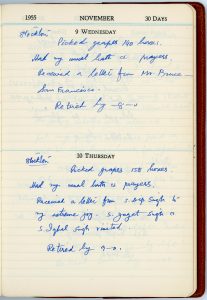 1955 NOVEMBER 30 DAYS
9 WEDNESDAY
Stockton
Picked grapes 140 boxes.
Had my usual bath & prayers.
Received a letter from Mr. Bruce
San Francisco.
Retired by -8-0
10 THURSDAY
Stockton
Picked grapes 158 boxes.
Had my usual bath & prayers.
Received a letter from S. Singh to
my extreme joy. S. Singh &
S. Iqbal Singh visited.
Retired by 9-0.